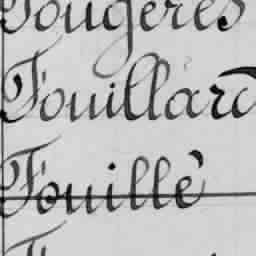 Fougères
Fouillard
Fouillé